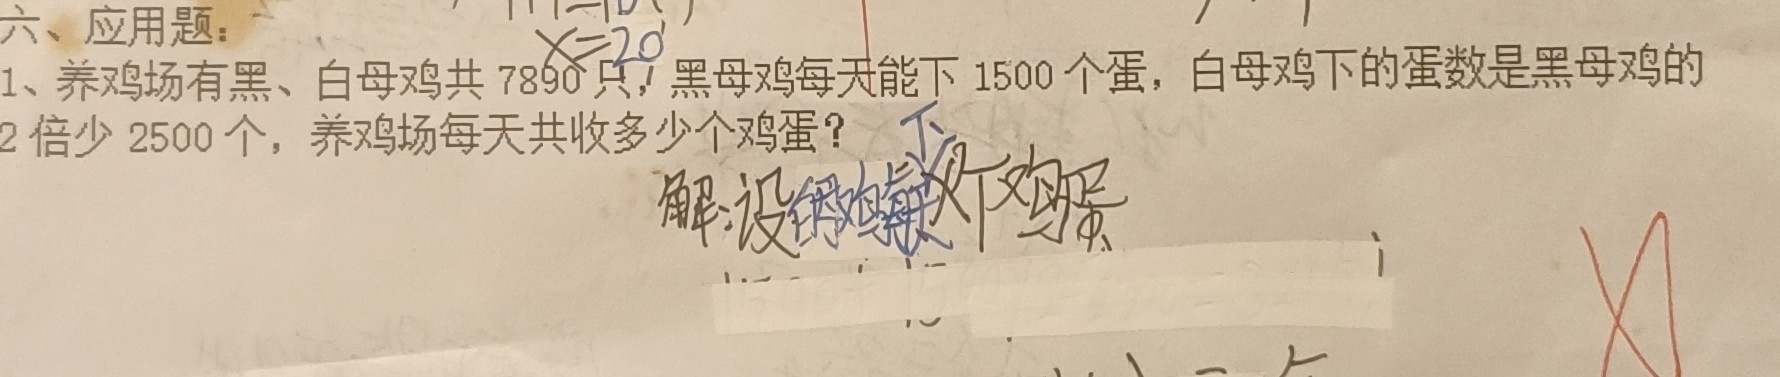 六、应用题：
x=20
1、养鸡场有黑、白母鸡共 7890 只，黑母鸡每天能下 1500 个蛋，白母鸡下的蛋数是黑母鸡的
2 倍少 2500 个，养鸡场每天共收多少个鸡蛋？
解：设白母鸡每天下x个鸡蛋